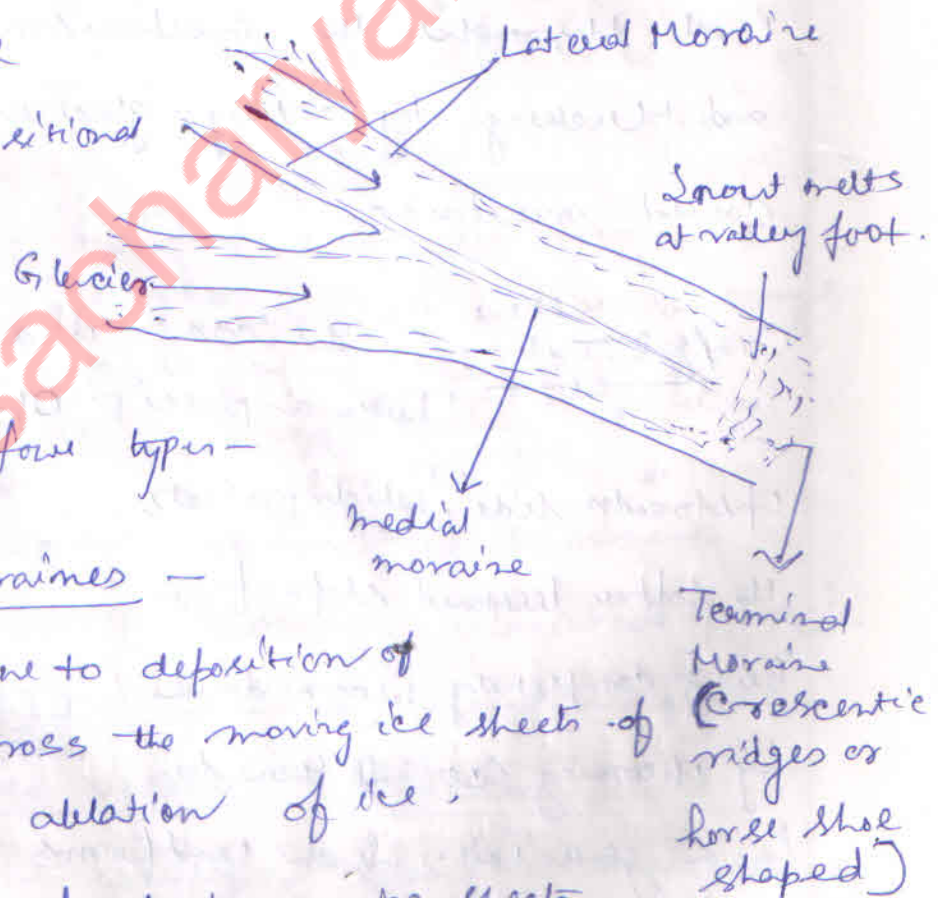 Lateral Moraine
sitional
Snout melts
at valley foot.
Glacier
four types-
medial
moraine
raines -
Terminal
Moraine
(Crescentic
ridges or
horse shoe
shaped)
ne to deposition of
ross the moving ice sheets of
ablation of ice.
sacharya